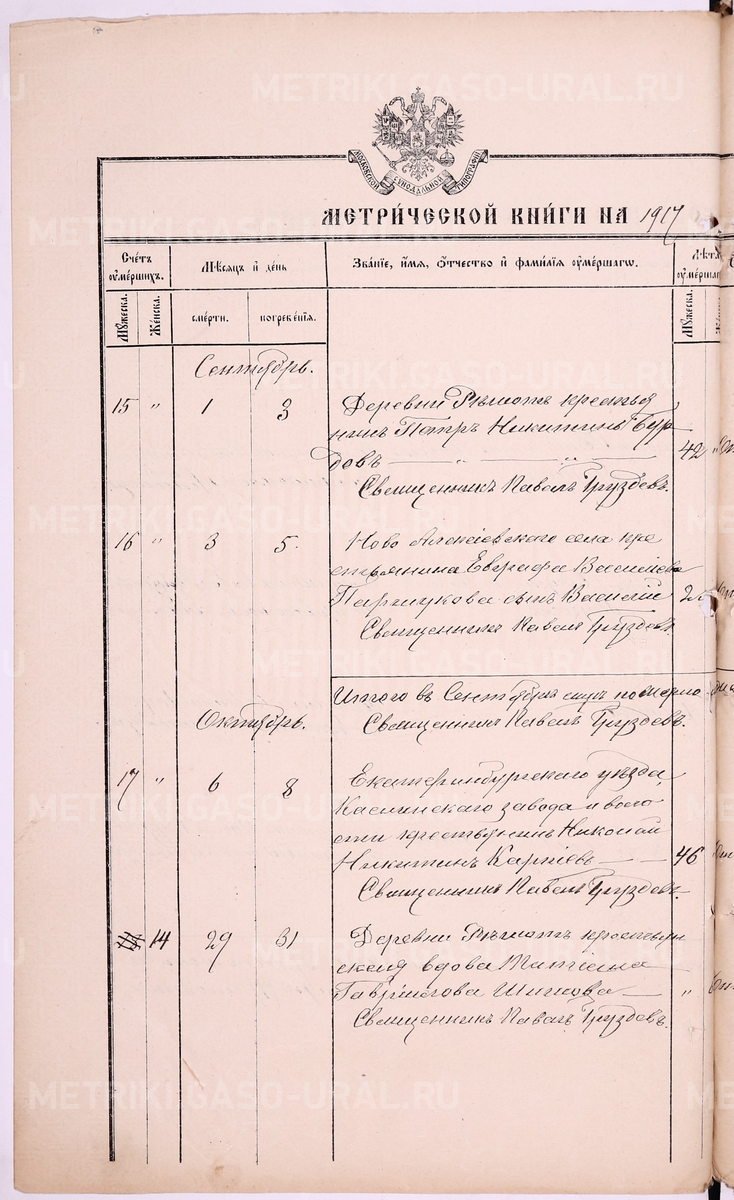 METRIKI.GASO-URAL.RU
МОСКОВСКОЙ СѴНОДАЛЬНОЙ ТИПОГРАФІИ
МЕТРИ́ЧЕСКОЙ КНИ́ГИ НА 1917
Сче́тъ ᲂу҆ме́ршихъ.
Мѣ́сяцъ и҆ де́нь
Зва́нїе, и҆́мѧ, ѻ҆́тчество и҆ фамилїѧ ᲂу҆ме́ршагѡ.
Лѣта̀
ᲂу҆ме́ршаг
Мꙋ́жеска.
Же́нска.
сме́рти.
погребе́нїѧ.
Мꙋ́жеска.
Сентябрь.
15 " 1 3 Деревни крестья
нинъ Петръ Никитинъ Бур
довъ — " — " — 42 "
Священникъ Павелъ Груздевъ.
16 " 3 5. Ново Алексѣевскаго села кре
стьянина Евграфа Васильева
сынъ Василій
Священникъ Павелъ Груздевъ
Итого въ Сентябрѣ померло
Октябрь.
Священникъ Павелъ Груздевъ.
17 " 6 8 Екатеринбургскаго уѣзда,
Каслинскаго завода и воло
сти крестьянинъ Николай
Никитинъ Карпіевъ — — 46
Священникъ Павелъ Груздевъ.
14 29 31 Деревни крестьян
ская вдова Татіана
Гаврилова — "
Священникъ Павелъ Груздевъ.